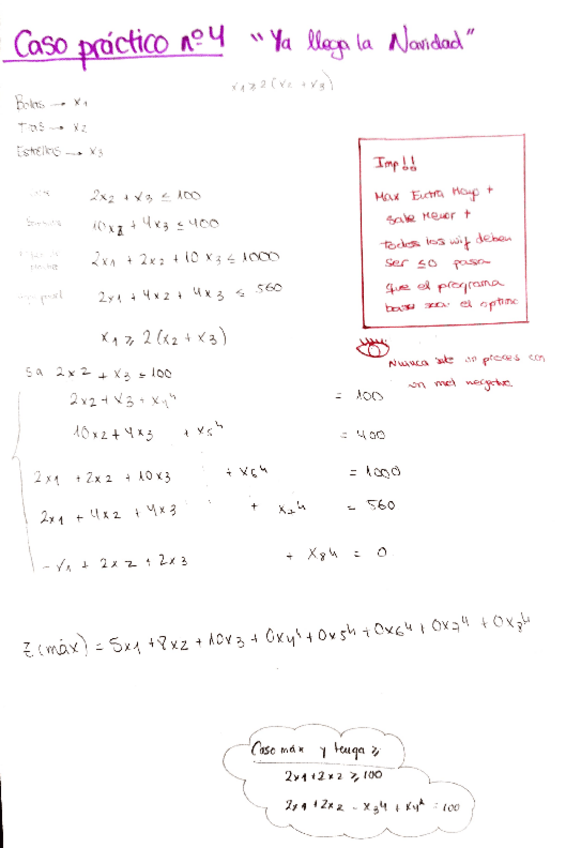 Caso práctico nº4 "Ya llega la Navidad"
x1 ≥ 2(x2 + x3)
Bolas → x1
Tiras → x2
Estrellas → x3
2x2 + x3 ≤ 100
10x2 + 4x3 ≤ 400
2x1 + 2x2 + 10x3 ≤ 1000
2x1 + 4x2 + 4x3 ≤ 560
x1 ≥ 2(x2 + x3)
Imp!!
Max Entra Mayo +
Sale Menor +
Todos los wif deben
ser ≤0 para
que el programa
el optimo
Nunca un proces con
un met negativo
Sa 2x2 + x3 ≤ 100
2x2 + x3 + x4ʰ = 100
10x2 + 4x3 + x5ʰ = 400
2x1 + 2x2 + 10x3 + x6ʰ = 1000
2x1 + 4x2 + 4x3 + x7ʰ = 560
-x1 + 2x2 + 2x3 + x8ʰ = 0
Z(máx) = 5x1 + 8x2 + 10x3 + 0x4ʰ + 0x5ʰ + 0x6ʰ + 0x7ʰ + 0x8ʰ
Caso máx y tenga ≥
2x1 + 2x2 ≥ 100
2x1 + 2x2 - x3ʰ + x4ᵃ = 100